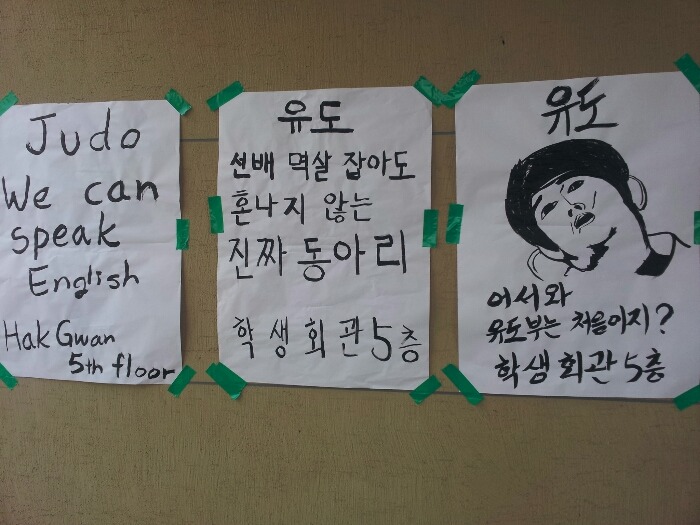 Judo
We can
speak
English
Hak Gwan
5th floor
유도
선배 멱살 잡아도
혼나지 않는
진짜 동아리
학생회관 5층
유도
어서와
유도부는 처음이지?
학생회관 5층